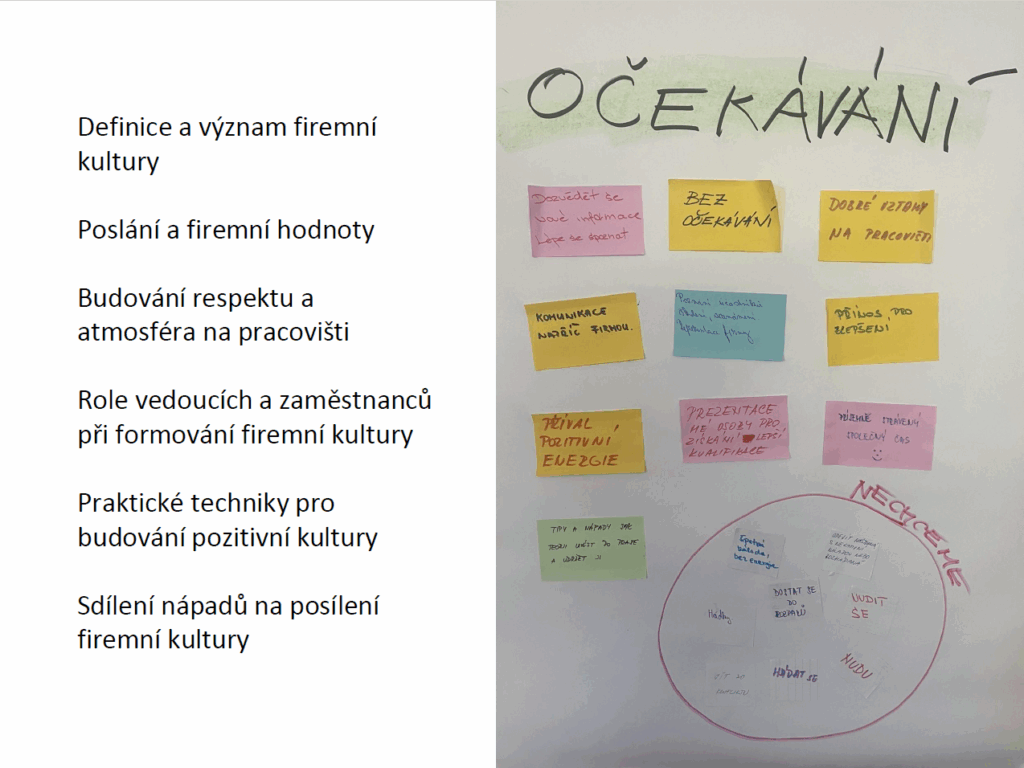 Definice a význam firemní
kultury
Poslání a firemní hodnoty
Budování respektu a
atmosféra na pracovišti
Role vedoucích a zaměstnanců
při formování firemní kultury
Praktické techniky pro
budování pozitivní kultury
Sdílení nápadů na posílení
firemní kultury
OČEKÁVÁNÍ
Dozvědět se
nové informace
Lépe se spoznat
BEZ
OČEKÁVÁNÍ
DOBRÉ VZTAHY
NA PRACOVIŠTI
KOMUNIKACE
NAPŘÍČ FIRMOU.
PŘÍNOS, PRO
ZLEPŠENÍ
PŘÍVAL
POZITIVNÍ
ENERGIE
PREZENTACE
MÉ OSOBY PRO
ZÍSKÁNÍ LEPŠÍ
KVALIFIKACE
PŘÍJEMNĚ STRÁVENÝ
SPOLEČNÝ ČAS
TIPY A NÁPADY JAK
TEORII UVÉST DO PRAXE
A UDRŽET JI
NECHCEME
Špatná
nálada,
bez energie
Hádky
DOSTAT SE
DO
ROZPAKŮ
NUDIT
SE
HÁDAT SE
NUDU